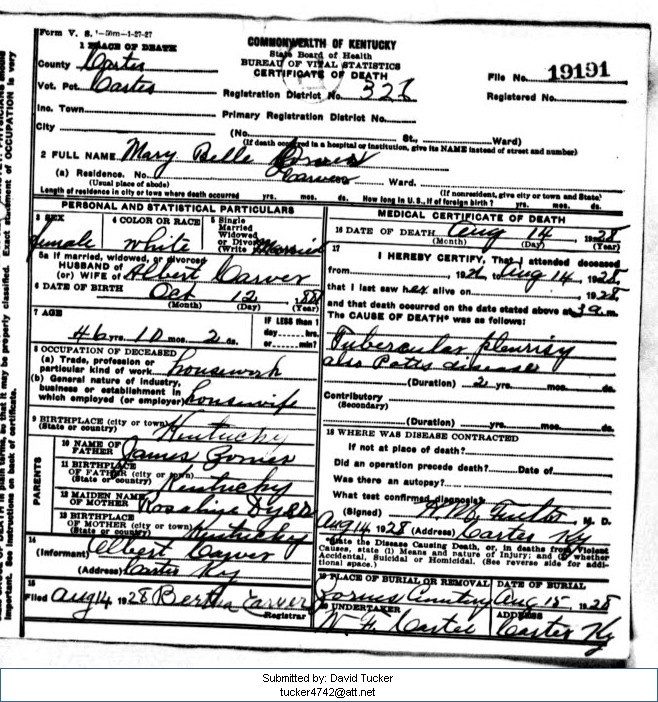 Form V. S. 1-50m-1-27-27
COMMONWEALTH OF KENTUCKY
State Board of Health
BUREAU OF VITAL STATISTICS
CERTIFICATE OF DEATH
1 PLACE OF DEATH
County Carter
Vot. Pct. Carter
Registration District No. 327
File No. 19191
Registered No.
Inc. Town
Primary Registration District No.
City
(No. St., Ward)
(If death occurred in a hospital or institution, give its NAME instead of street and number)
2 FULL NAME Mary Belle Carver
(a) Residence. No. Ward.
(Usual place of abode) (If nonresident, give city or town and State)
Length of residence in city or town where death occurred yrs. mos. ds. How long in U. S., if of foreign birth? yrs. mos. ds.
PERSONAL AND STATISTICAL PARTICULARS
3 SEX female
4 COLOR OR RACE white
5 Single Married Widowed or Divorced (Write Married
5a If married, widowed, or divorced
HUSBAND of
(or) WIFE of Albert Carver
6 DATE OF BIRTH Oct 12
(Month) (Day) (Year)
7 AGE
46 yrs. 10 mos. 2 ds.
IF LESS than 1
day hrs.
or min?
8 OCCUPATION OF DECEASED
(a) Trade, profession or
particular kind of work housework
(b) General nature of industry,
business or establishment in
which employed (or employer) housewife
9 BIRTHPLACE (city or town)
(State or country) Kentucky
PARENTS
10 NAME OF
FATHER James
11 BIRTHPLACE
OF FATHER (city or town)
(State or country) Kentucky
12 MAIDEN NAME
OF MOTHER
13 BIRTHPLACE
OF MOTHER (city or town)
(State or country) Kentucky
14
(Informant) Albert Carver
(Address) Carter Ky
15
Filed Aug 14, 1928 Bertha Carver
Registrar
MEDICAL CERTIFICATE OF DEATH
16 DATE OF DEATH Aug 14, 1928
(Month) (Day) (Year)
17
I HEREBY CERTIFY, That I attended deceased
from , 192 to Aug 14, 1928,
that I last saw her alive on , 1928,
and that death occurred on the date stated above at 3 a.m.
The CAUSE OF DEATH* was as follows:
Tubercular pleurisy
also Potts disease
(Duration) 2 yrs. mos. ds.
Contributory
(Secondary)
(Duration) yrs. mos. ds.
18 WHERE WAS DISEASE CONTRACTED
If not at place of death?
Did an operation precede death? Date of
Was there an autopsy?
What test confirmed diagnosis?
(Signed) M. D.
Aug 14 1928 (Address) Carter Ky
*State the Disease Causing Death, or, in deaths from Violent
Causes, state (1) Means and nature of Injury; and (2) whether
Accidental, Suicidal or Homicidal. (See reverse side for addi-
tional space.)
19 PLACE OF BURIAL OR REMOVAL DATE OF BURIAL
Cemetery Aug 15, 1928
20 UNDERTAKER ADDRESS
W F Carter Carter Ky
Submitted by: David Tucker
tucker4742@att.net